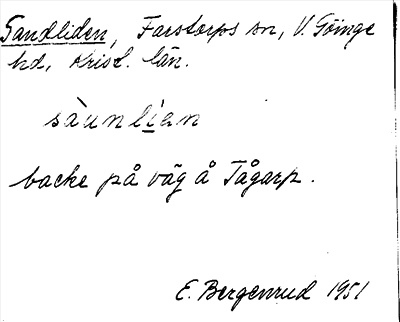 Sandliden, Farstorps sn, V. Göinge
hd, Krist. län.
sàunlien
backe på väg å Tågarp.
E. Bergenrud 1951